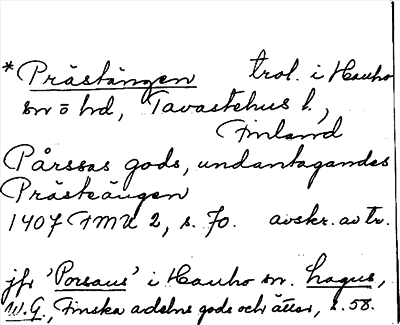 *Prästängen trol. i Hauho
sn ö hd, Tavastehus l,
Finland
Pårssas gods, undantagandes
Prästeängen
1407 FMU 2, s. 70. avskr. av tr.
jfr 'Porsaus' i Hauho sn. Lagus,
W.G., Finska adelns gods och ätter, s. 58.